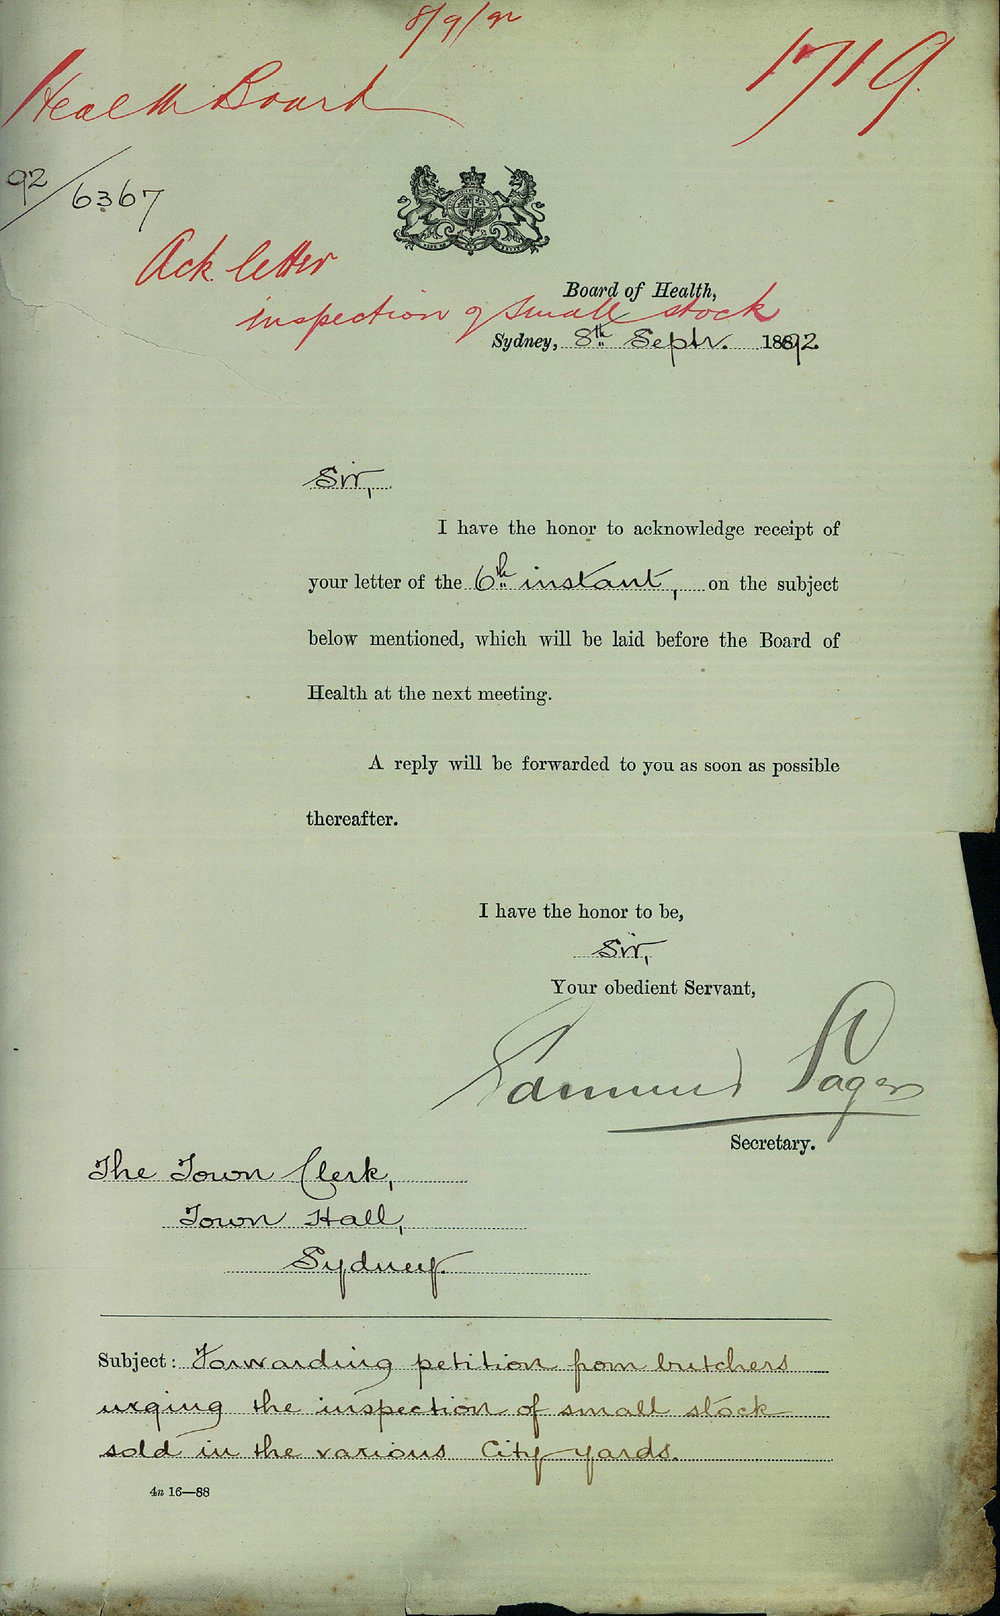 8/9/92
Health Board
1719
92/6367
Ack letter
inspection of small stock
Board of Health,
Sydney, 8th Septr. 1892
Sir,
I have the honor to acknowledge receipt of
your letter of the 6th instant, on the subject
below mentioned, which will be laid before the Board of
Health at the next meeting.
A reply will be forwarded to you as soon as possible
thereafter.
I have the honor to be,
Sir,
Your obedient Servant,
Edmund Sager
Secretary.
The Town Clerk,
Town Hall,
Sydney.
Subject: Forwarding petition from butchers
urging the inspection of small stock
sold in the various City yards.
4n 16—88